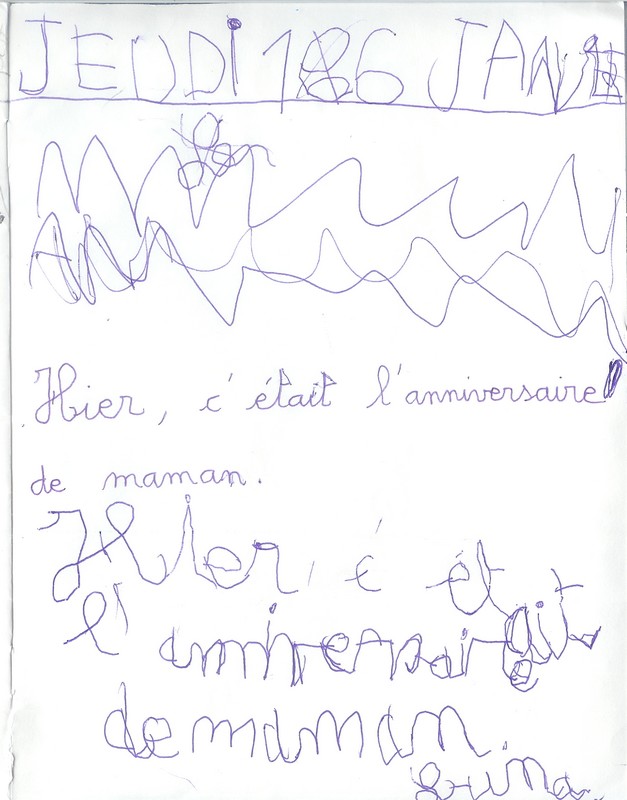 JEUDI 186 JANVIE
Hier, c'était l'anniversaire
de maman.
Hier, c' était
l'anniversaire
de maman